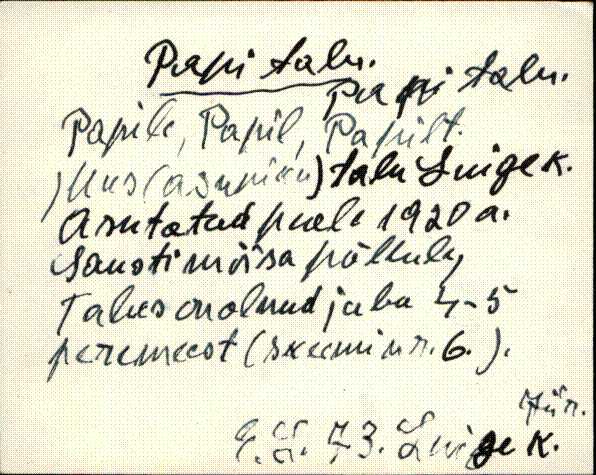 Papi talu.
Papi talu.
Papile, Papil, Papilt.
Uus (asuniku) talu Luige k.
Asutatud peale 1920 a.
Sausti mõisa põllule,
Talus on olnud juba 4-5
peremeest (skeemi nr. 6.).
Jür.
E.H. 73. Luige k.